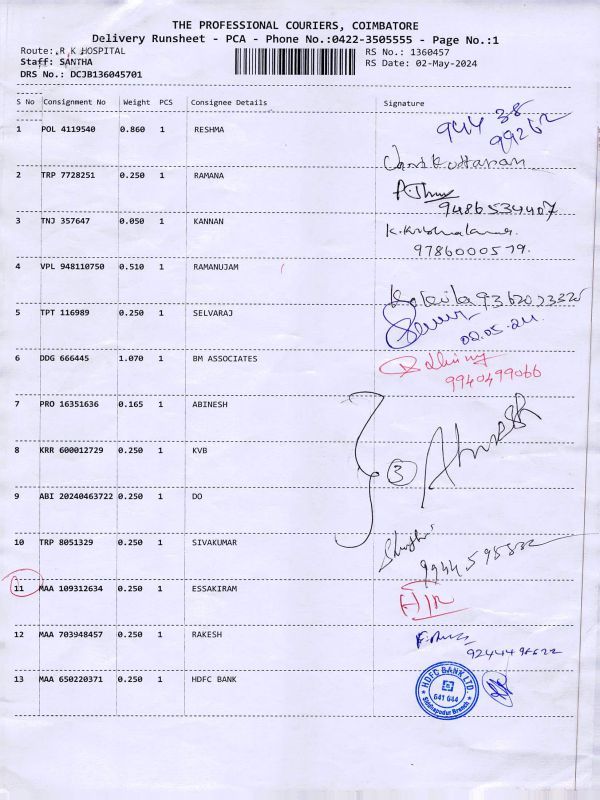 THE PROFESSIONAL COURIERS, COIMBATORE
Delivery Runsheet - PCA - Phone No.:0422-3505555 - Page No.:1
Route:.R K HOSPITAL
Staff: SANTHA
DRS No.: DCJB136045701
RS No.: 1360457
RS Date: 02-May-2024
S No Consignment No Weight PCS Consignee Details Signature
1 POL 4119540 0.860 1 RESHMA 944 38
99262
2 TRP 7728251 0.250 1 RAMANA
9486534407
3 TNJ 357647 0.050 1 KANNAN
9786000579.
4 VPL 948110750 0.510 1 RAMANUJAM
Kokila
5 TPT 116989 0.250 1 SELVARAJ
02.05.24
6 DDG 666445 1.070 1 BM ASSOCIATES
9940499066
7 PRO 16351636 0.165 1 ABINESH
8 KRR 600012729 0.250 1 KVB
3
9 ABI 20240463722 0.250 1 DO
10 TRP 8051329 0.250 1 SIVAKUMAR
11 MAA 109312634 0.250 1 ESSAKIRAM
12 MAA 703948457 0.250 1 RAKESH
13 MAA 650220371 1 0.250 HDFC BANK
HDFC BANK LTD.
641 044
Siddhapudur Branch